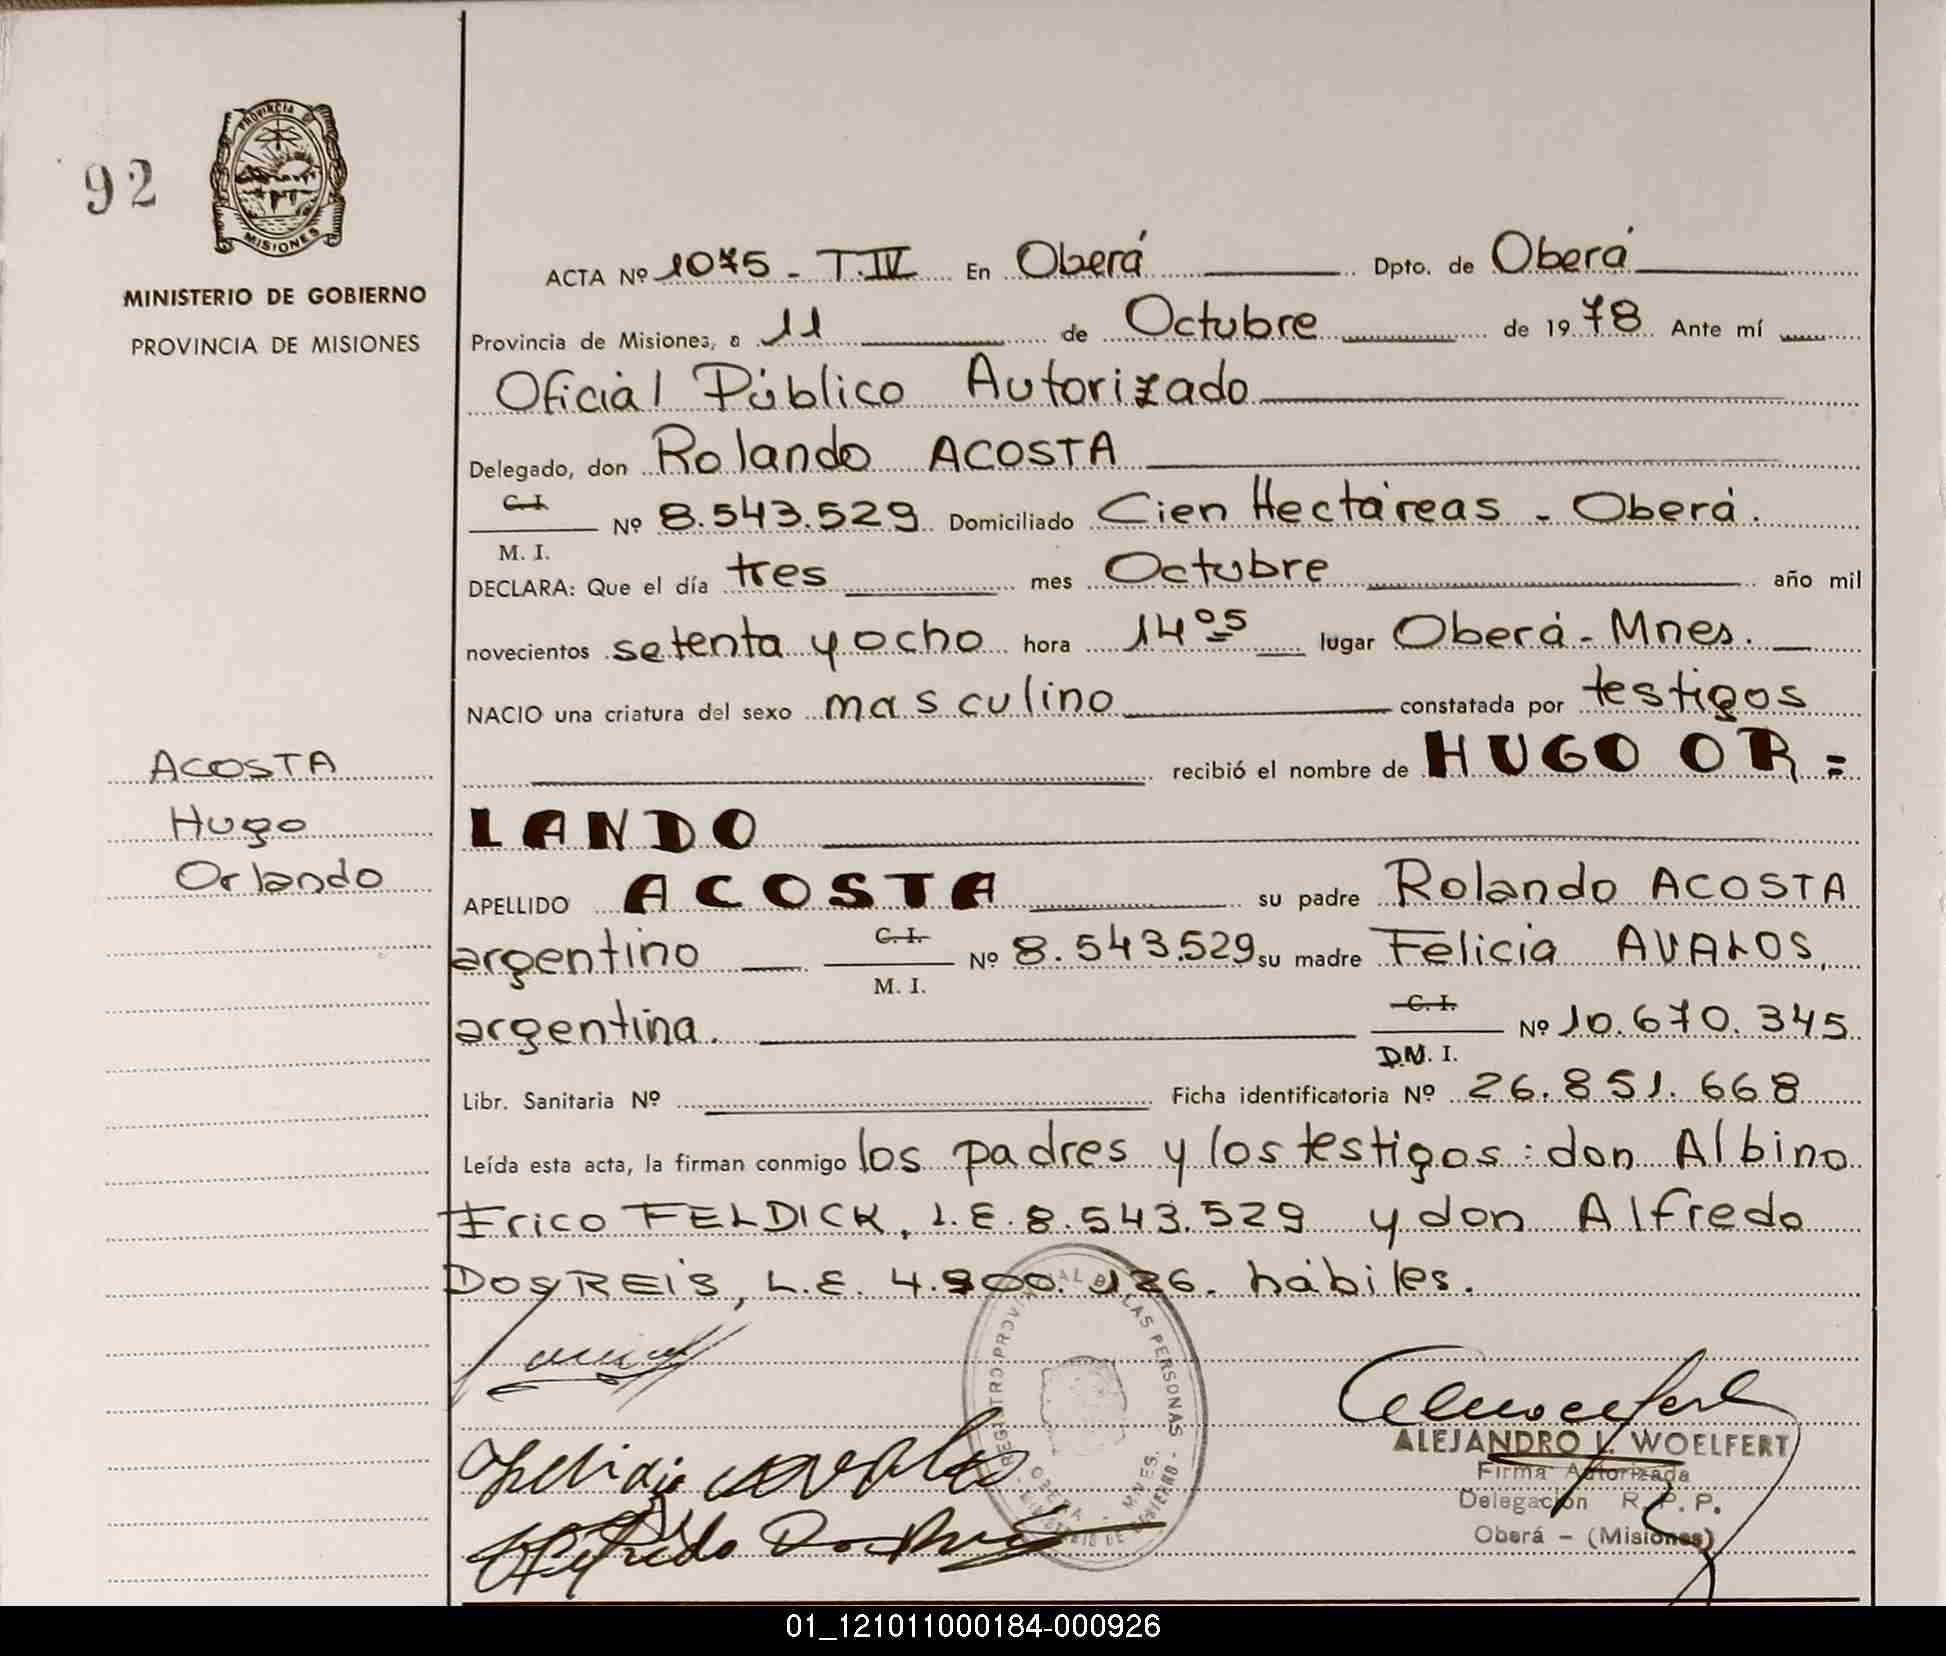 92
PROVINCIA
MISIONES
MINISTERIO DE GOBIERNO
PROVINCIA DE MISIONES
ACTA Nº 1075 - T.IV En Oberá Dpto. de Oberá
Provincia de Misiones, a 11 de Octubre de 1978 Ante mí
Oficial Público Autorizado
Delegado, don Rolando ACOSTA
C.I.
M. I. Nº 8.543.529 Domiciliado Cien Hectáreas - Oberá.
DECLARA: Que el día tres mes Octubre año mil
novecientos setenta y ocho hora 14 05 lugar Oberá - Mnes.
NACIO una criatura del sexo masculino constatada por testigos
recibió el nombre de HUGO OR=
LANDO
APELLIDO ACOSTA su padre Rolando ACOSTA
argentino C.I. M. I. Nº 8.543.529 su madre Felicia AVALOS,
argentina. C.I. D.N. I. Nº 10.670.345
Libr. Sanitaria Nº Ficha identificatoria Nº 26.851.668
Leída esta acta, la firman conmigo los padres y los testigos: don Albino
Erico FELDICK, L.E. 8.543.529 y don Alfredo
DOS REIS, L.E. 4.900.126. hábiles.
ACOSTA
Hugo
Orlando
REGISTRO PROVINCIAL DE LAS PERSONAS
OBERA - MNES.
MINISTERIO DE GOBIERNO
Felicia Avalos
Alfredo Dos Reis
ALEJANDRO L. WOELFERT
Firma Autorizada
Delegación R. P. P.
Oberá - (Misiones)
01_121011000184-000926